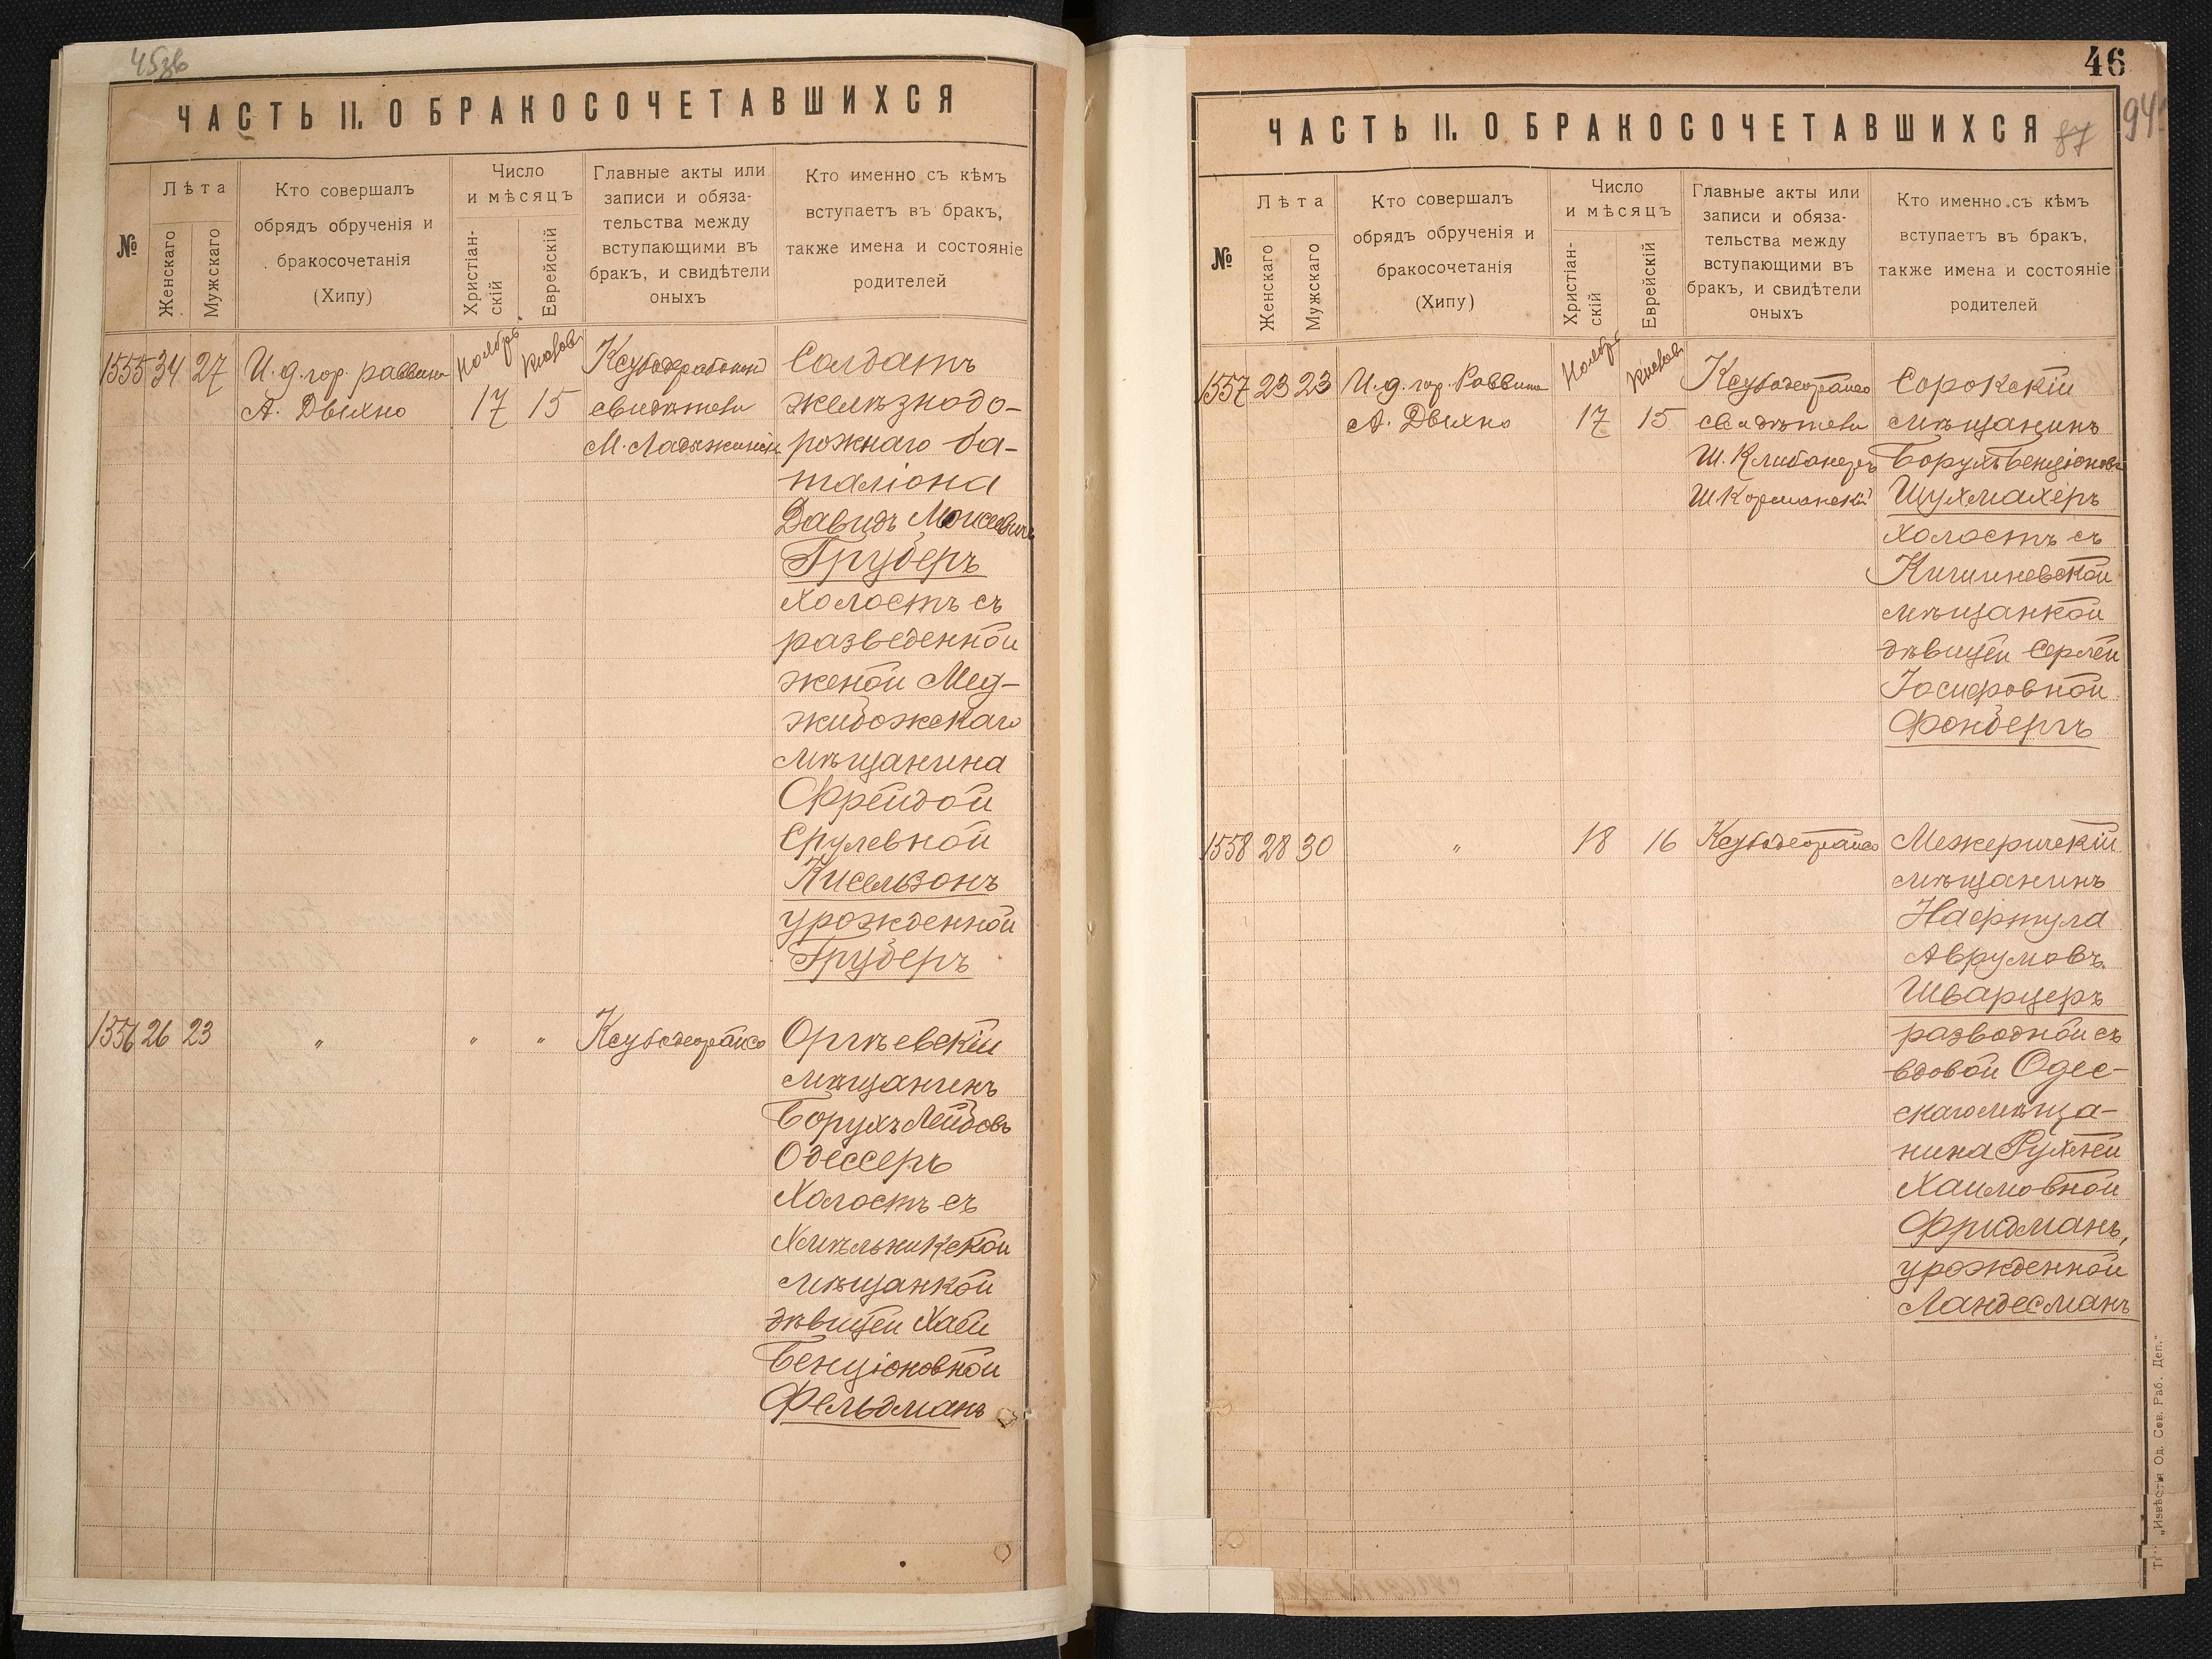 45
ЧАСТЬ II. О БРАКОСОЧЕТАВШИХСЯ
№
Лѣта
Женскаго
Мужскаго
Кто совершалъ
обрядъ обрученія и
бракосочетанія
(Хипу)
Число
и мѣсяцъ
Христіан-
скій
Еврейскій
Главные акты или
записи и обяза-
тельства между
вступающими въ
бракъ, и свидѣтели
оныхъ
Кто именно съ кѣмъ
вступаетъ въ бракъ,
также имена и состояніе
родителей
1555 34 27
И. д. гор. раввина
А. Двихно
Ноябрь
17
Кислов
15
свидѣтели
Солдатъ
желѣзнодо-
рожнаго ба-
таліона
Давидъ Моисеевичъ
Груберъ
холостъ съ
разведенной
женой Мед-
жибожскаго
мѣщанина
Фрейдой
Срулевной
Кисельзонъ
урожденной
Груберъ
1556 26 23
" " "
Оргѣевскій
мѣщанинъ
Борухъ Лейбовъ
Одессеръ
Холостъ съ
Хмѣльникской
мѣщанкой
дѣвицей Хаей
Бенціоновной
Фельдманъ
46
94
87
ЧАСТЬ II. О БРАКОСОЧЕТАВШИХСЯ
№
Лѣта
Женскаго
Мужскаго
Кто совершалъ
обрядъ обрученія и
бракосочетанія
(Хипу)
Число
и мѣсяцъ
Христіан-
скій
Еврейскій
Главные акты или
записи и обяза-
тельства между
вступающими въ
бракъ, и свидѣтели
оныхъ
Кто именно съ кѣмъ
вступаетъ въ бракъ,
также имена и состояніе
родителей
1557 23 23
И. д. гор. Раввина
А. Двихно
Ноябр
17
Кислов
15
свидѣтели
Ш. Клибанеръ
Сорокскій
мѣщанинъ
Борухъ Бенціоновъ
Шухмахеръ
холостъ съ
Кишиневской
мѣщанкой
дѣвицей Серлей
Іосифовной
Фонбергъ
1558 28 30
"
18
16
Межеричскій
мѣщанинъ
Нафтула
Аврумовъ
Шварцеръ
разводной съ
вдовой Одес-
скаго мѣща-
нина Рухлей
Хаимовной
Фридманъ,
урожденной
Ландесманъ
„Извѣстія Од. Сов. Раб. Деп."